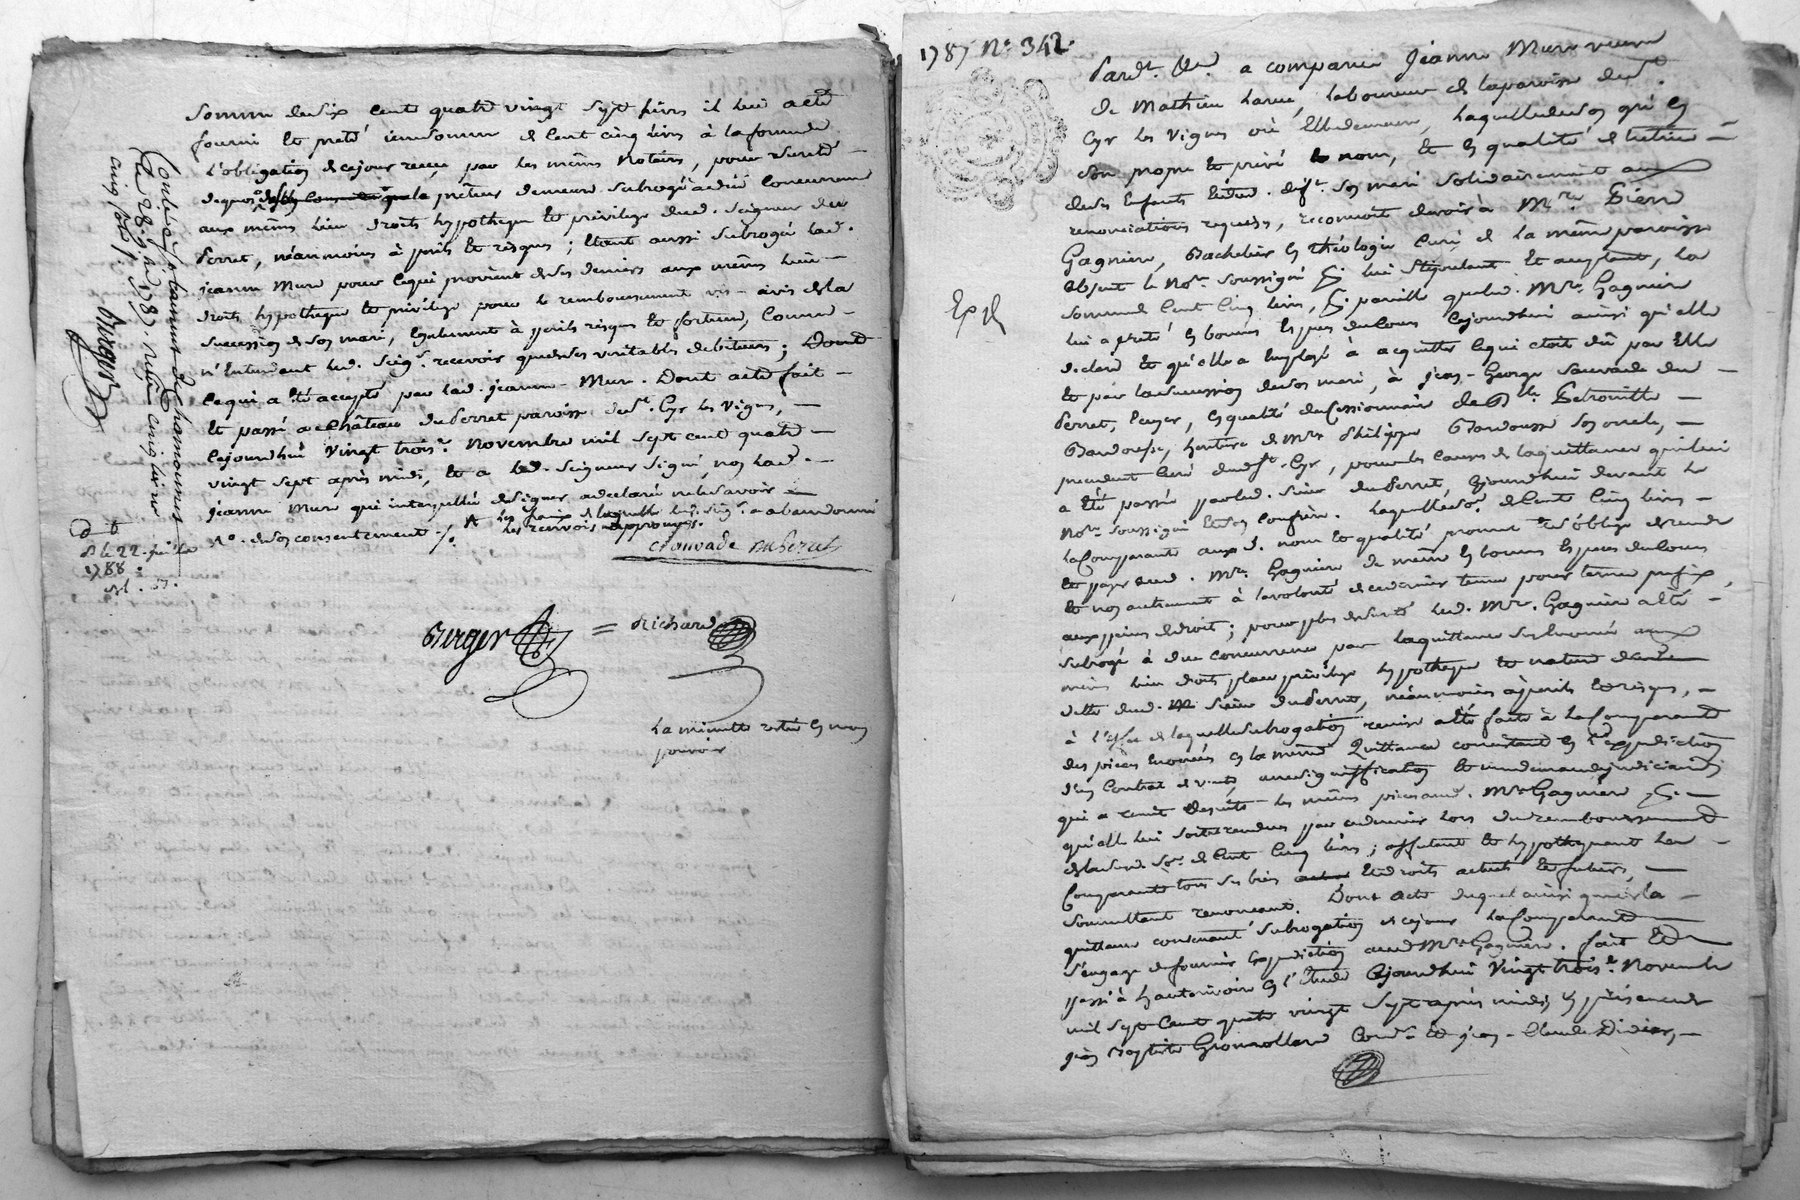 somme de six cent quatre vingt sept livres il lui a été
fourni et prêté une somme de cent cinq livres à la forme de
l'obligation de ce jour reçue par les mêmes notaires, pour sureté
de quoi le prêteur demeure subrogé à due concurrence
aux mêmes lieu droits hypotheque et privilege dud. Seigneur du
Serret, néanmoins à perils et risques; étant aussi subrogée lad.
jeanne Mure pour ce qui provient de ses deniers aux mêmes lieu
droits hypotheque et privilége pour le remboursement vis-avis de la
succession de son mari, egalement à perils risques et fortune, comme
n'entendant led. Seigr. recevoir que de ses veritables debiteurs; Dont
ce qui a été accepté par lad. jeanne Mure. Dont acte fait
et passé au château du Serret paroisse de St. Cyr les Vignes,
cejourdhui vingt trois. novembre mil sept cent quatre
vingt sept après midi, et a led. Seigneur signé, non lad.
jeanne Mure qui interpellée de signer a déclaré ne le savoir
de son consentement
les renvois approuvés.
Sauvade du Serret
Berger = Richard
La minutte restée en mon
pouvoir
Controlé
le 28. 9bre 1787 cinq livres
cinq sols
Berger
D d
S le 22. juillet
1788.
1787 N° 342.
Expé
Pardt. &a. a comparu Jeanne Mure veuve
de Mathieu laboureur de la paroisse de St.
Cyr les Vignes où elle demeure, laquelle de son gré en
son propre et privé nom, et en qualité de tutrice
de ses enfants dud. deft. son mari solidairement aux
renonciations requises, reconnoit devoir à Mre. Pierre
Gagnière, Bachelier en théologie Curé de la même paroisse
absent le Nore. soussigné pr. lui stipulant et acceptant, la
somme de cent cinq livres, pr. pareille que led. Mre. Gagnière
lui a prêté en bonnes especes du cours cejourdhui ainsi qu'elle
déclare et qu'elle a employé à acquitter ce qui etoit dû par elle
et par la succession de son mari, à jean-George Sauvade du
Serret, Ecuyer, en qualité de cessionnaire de Dlle Petronille
Bardousse, heritiere de Mre Philippe Bardousse son oncle,
precedent curé dud St. Cyr, pour les causes de la quittance qui lui
a été passée par led. Sieur du Serret, cejourdhui devant le
Nore. soussigné et son confrère. laquelle sᵉ. de cent cinq livres
la Comparante aux d. nom et qualité promet et s'oblige de rendre
et payer aud. Mre. Gagnière de même en bonnes especes du cours
et non autrement à la volonté de ce dernier terme pour terme prefix,
aux peines de droit; pour plus de sureté led. Mre. Gagnière a été
subrogé à due concurrence par la quittance susénoncée aux
mêmes lieu droits place privilege hypotheque et nature de
dette dud. Sieur du Serret, néanmoins à perils et risques,
à l'effet de laquelle subrogation remise a été faite à la Comparante
des pièces énoncées en la même Quittance consistant en l'expedition
d'un Contrat de vente, une signiffication et une demande judiciaire
qui a remit desuite les mêmes pièces aud. Mre Gagnière pr.
qu'elle lui soient rendues par ce dernier lors du remboursement
de lad sᵉ. de cent cinq livres; affectant et hypothequant la
Comparante tous ses biens et droits actuels et futurs,
soumettant renonceant. Dont acte duquel ainsi que de la
quittance contenant subrogation de ce jour la Comparante
s'engage de fournir expedition aud Mre Gagnière. fait et
passé à hauterivoire en l'Etude cejourdhui vingt trois. Novembre
mil sept Cent quatre vingt sept après midi, en présence de
jean Baptiste et jean-Claude Didier,